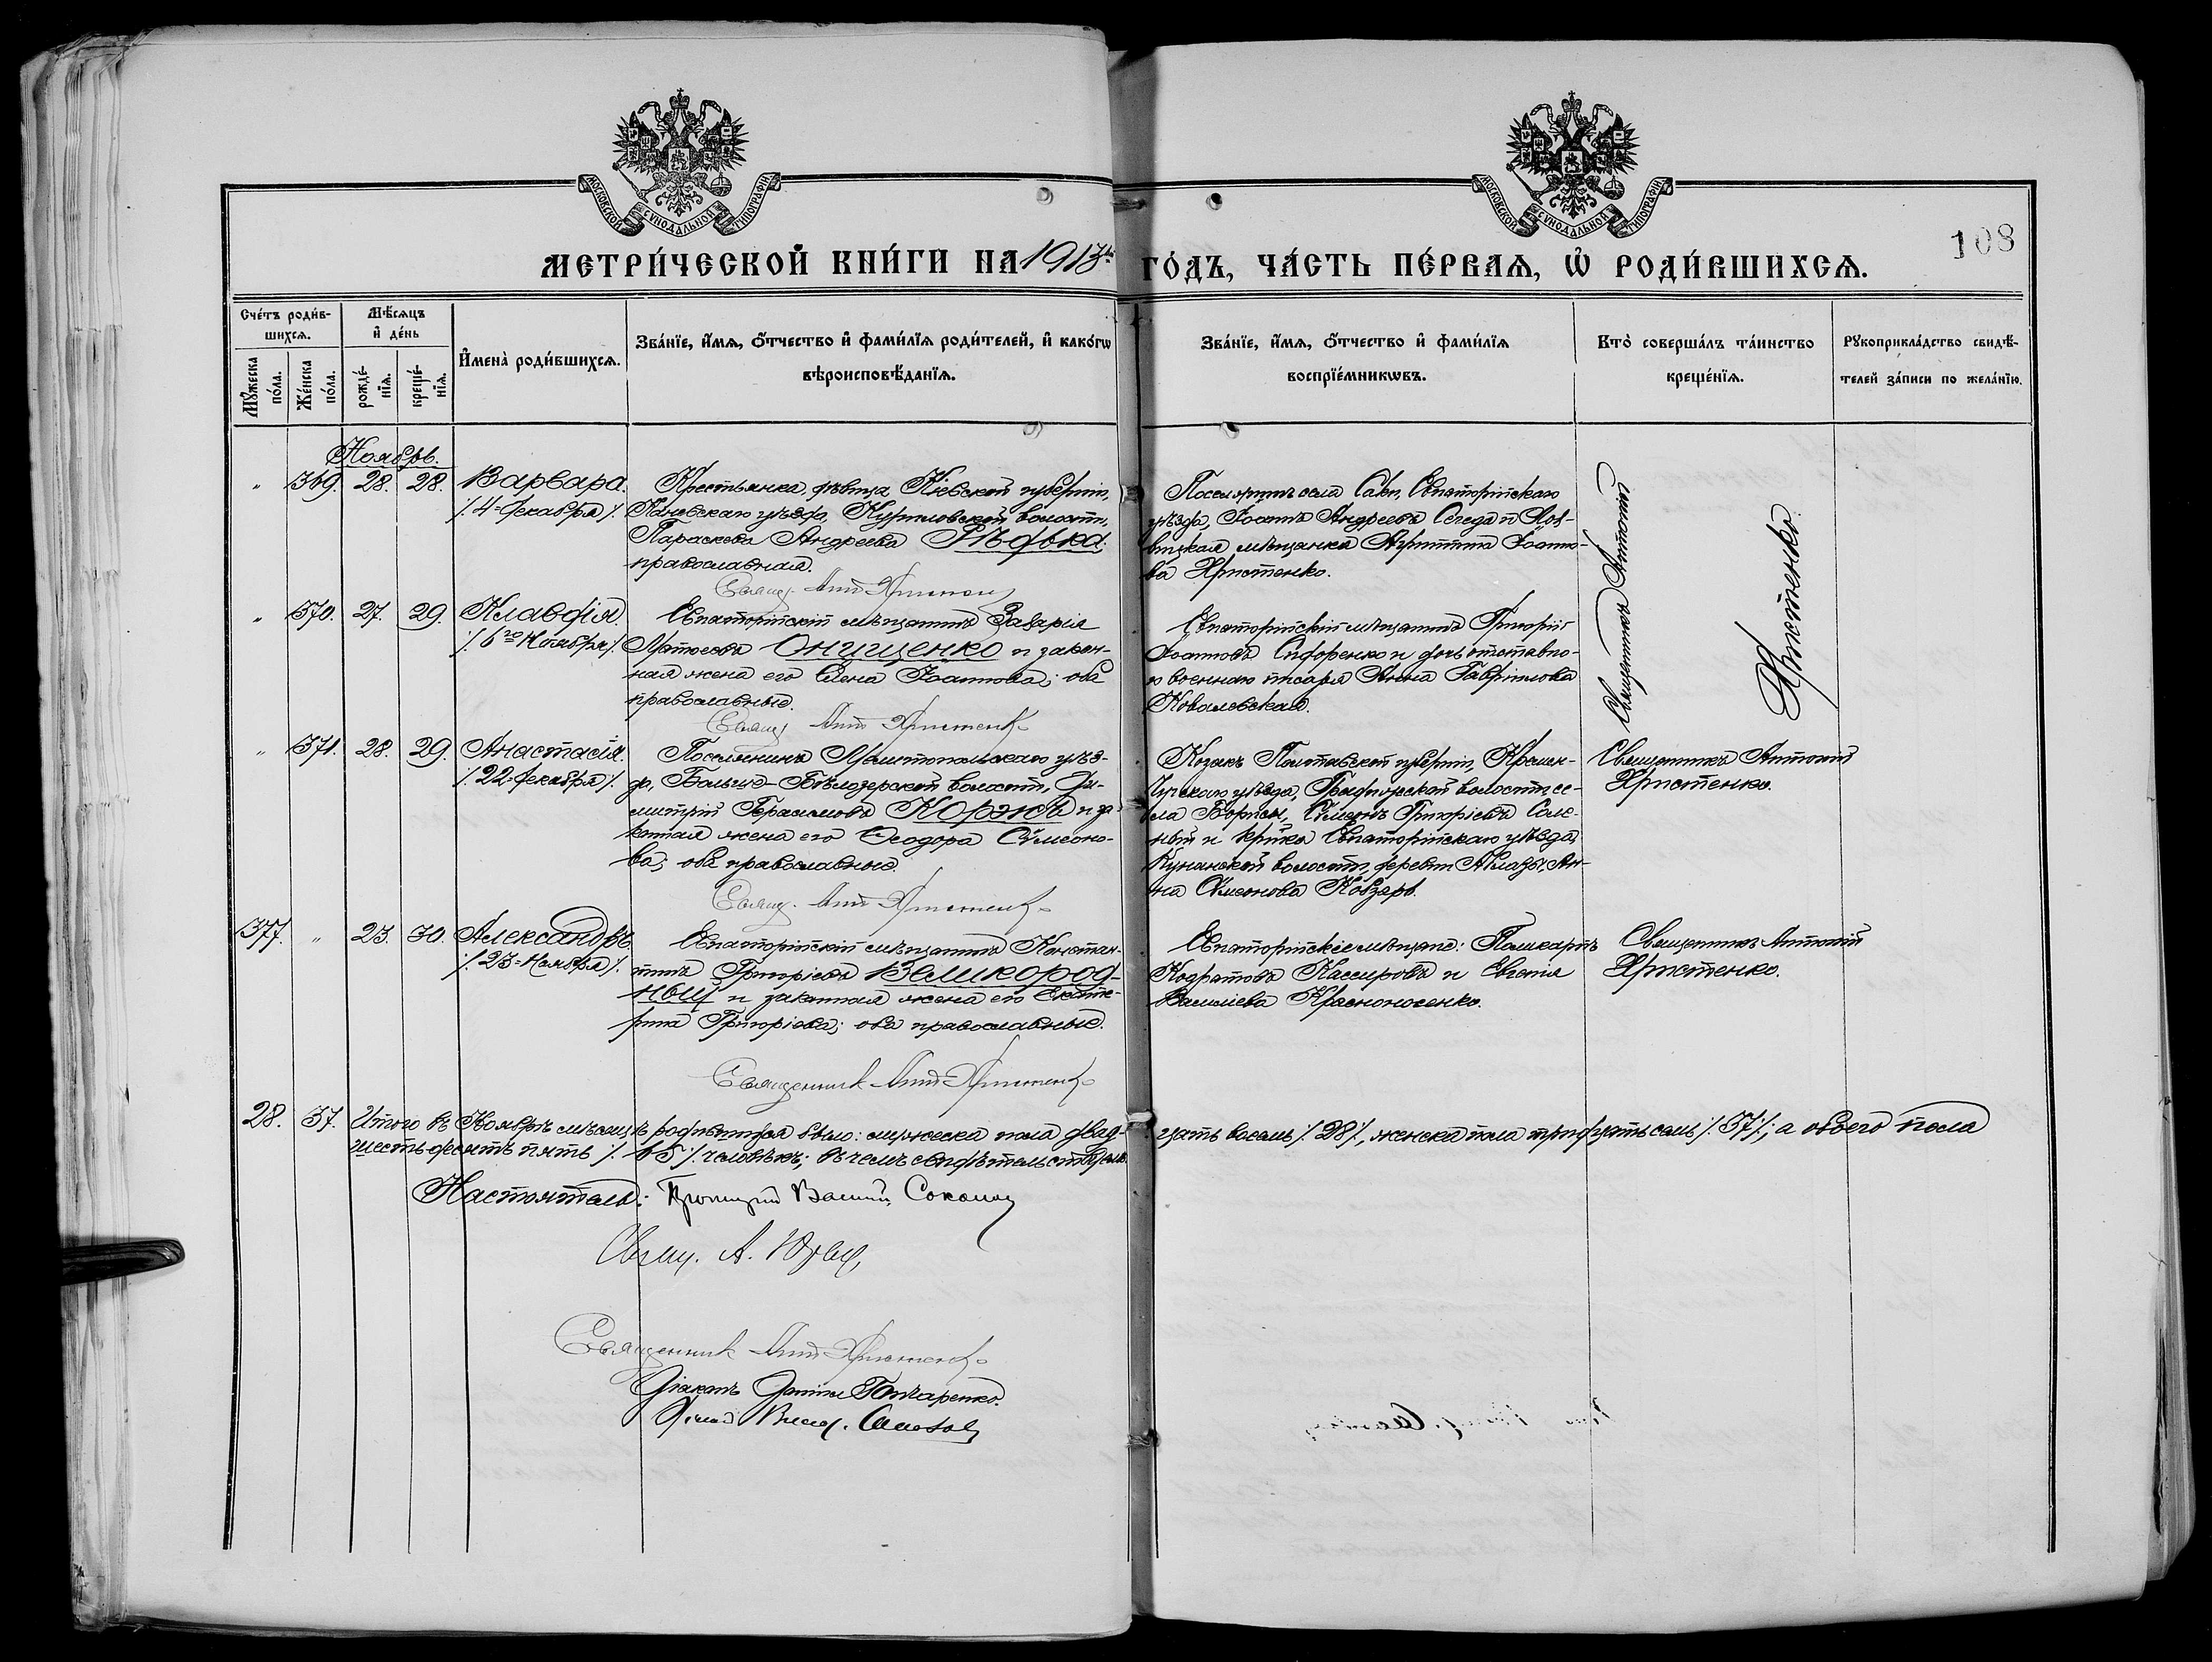 МОСКОВСКОЙ СѴНОДАЛЬНОЙ ТИПОГРАФІИ
МОСКОВСКОЙ СѴНОДАЛЬНОЙ ТИПОГРАФІИ
108
МЕТРИ́ЧЕСКОЙ КНИ́ГИ НА 1913й ГО́ДЪ, ЧА́СТЬ ПЕ́РВАѦ, Ѡ҆ РОДИ́ВШИХСѦ.
Сче́тъ роди́в-
шихсѧ.
Мꙋ́жеска по́ла.
Же́нска по́ла.
Мѣ́сѧцъ
и҆ де́нь
рожде́-нїѧ.
креще́-нїѧ.
И҆мена̀ роди́вшихсѧ.
Зва́нїе, и҆́мѧ, ѻ҆́тчество и҆ фами́лїѧ роди́телей, и҆ како́гѡ
вѣроисповѣ́данїѧ.
Зва́нїе, и҆́мѧ, ѻ҆́тчество и҆ фами́лїѧ
воспрїе́мникѡвъ.
Кто̀ соверша́лъ та́инство
креще́нїѧ.
Рꙋкоприкла́дство свидѣ́-
телей за́писи по жела́нїю.
Ноябрь.
" 369. 28. 28. Варвара.
/4=Декабря/.
Крестьянка, дѣвица Кіевской губерніи,
Каневскаго уѣзда, Куриловской волости,
Параскева Андреева Рѣдька;
православная.
Свящ. Ант Христенко
Поселянинъ села Саки, Евпаторійскаго
уѣзда, Іоаннъ Андреевъ Сегеда и
мѣщанка Агриппина Іоанно-
ва Христенко.
Священникъ Антоній
Христенко.
" 370. 27. 29. Клавдія.
/6го Ноября/.
Евпаторійскій мѣщанинъ Захарія
Онищенко и закон-
ная жена его Елена Іоаннова; оба
православные.
Свящ Ант Христенко
Евпаторійскій мѣщанинъ Григорій
Іоанновъ Сидоренко и дочь отставно-
го военнаго писаря Анна Гавріилова
Коваловская.
" 371. 28. 29. Анастасія.
/22=Декабря/.
Поселянинъ Мелитопольскаго уѣз-
да, Больше-Бѣлозерской волости, Ди-
митрій Герасимовъ Коржъ и за-
конная жена его Ѳеодора Сѵмеоно-
ва; оба православные.
Свящ. Ант Христенко
Козакъ Полтавской губерніи, Кремен-
чугскаго уѣзда, волости се-
ла Борисы, Сѵмеонъ Григоріевъ
и Евпаторійскаго уѣзда,
волости, деревни Ан-
на Сѵмеонова Кобзарь.
Священникъ Антоній
Христенко.
377. " 23. 30. Александръ.
/23=Ноября/.
Евпаторійскій мѣщанинъ Констан-
тинъ Григоріевъ Великород-
ный и законная жена его Екате-
рина Григоріева; оба православные.
Священникъ Ант Христенко
Евпаторійскіе мѣщане: Поликарпъ
Кодратовъ Кассировъ и Евгенія
Василіева Красноносенко.
Священникъ Антоній
Христенко.
28. 37. Итого въ Ноябрѣ мѣсяцѣ родившихся было: мужеска пола двад-цать восемь /28/, женска пола тридцать семь /37/; а обоего пола
шестьдесятъ пять /65/ человѣкъ; въ чемъ свидѣтельствуемъ.
Настоятель: Протоіерей Василій Соколов
Свящ. А.
Священникъ Ант Христенко
Діаконъ Даніилъ Гончаренко.